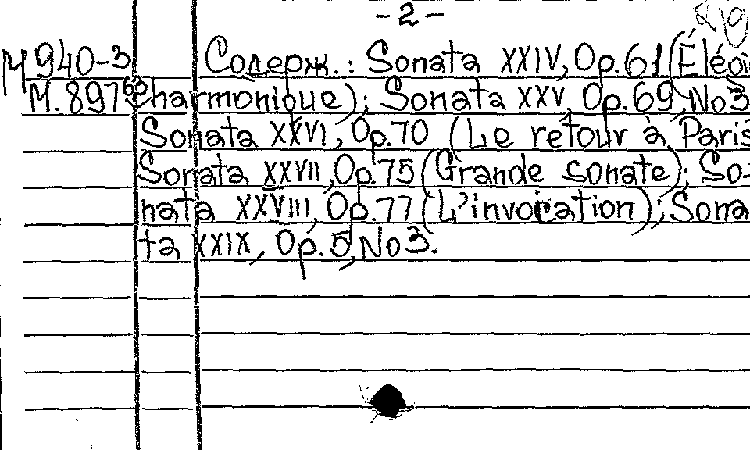 -2-
М 940-3 Содерж.: Sonata XXIV, Op.61 (Élégi
М.897 harmonique); Sonata XXV, Op.69, No3
Sonata XXVI, Op.70 (Le retour à Paris
Sonata XXVII, Op.75 (Grande sonate); So-
nata XXVIII, Op.77 (L'invocation); Sona
ta XXIX, Op.5, No3.